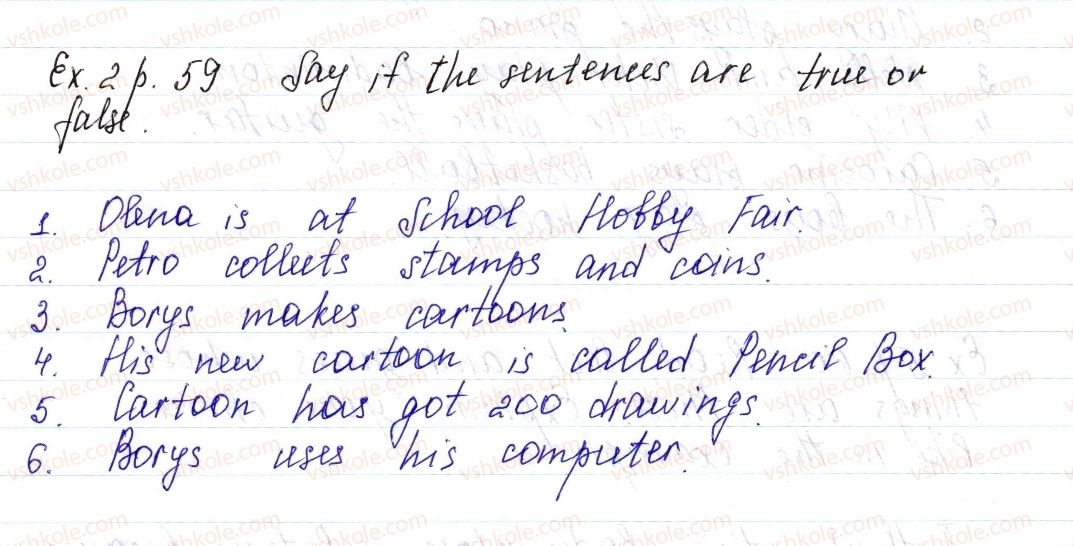 Ex. 2 p. 59 Say if the sentences are true or
false.
1. Olena is at School Hobby Fair.
2. Petro collects stamps and coins.
3. Borys makes cartoons.
4. His new cartoon is called Pencil Box.
5. Cartoon has got 200 drawings.
6. Borys uses his computer.
vshkole.com